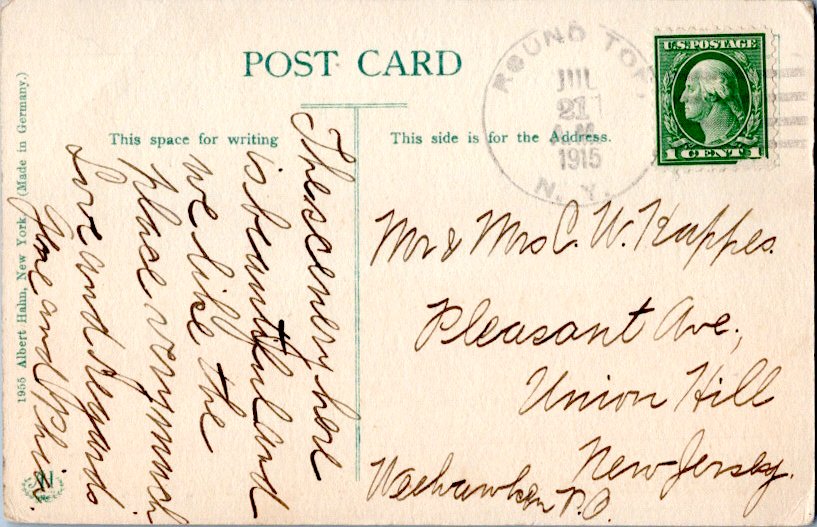 POST CARD
This space for writing
This side is for the Address.
1955 Albert Hahn, New York. (Made in Germany.)
ROUND TOP,
JUL
21
A.M.
1915
N. Y.
U.S. POSTAGE
1 CENT 1
The scenery here
is beautiful and
we like the
place very much
Love and Regards
and Phil.
Mr & Mrs C. W. Kappes.
Pleasant Ave.,
Union Hill
New Jersey.
Weehawken P.O.